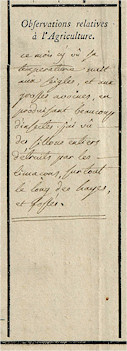 Observations relatives
à l'Agriculture.
ce mois cy où sa
temperature nuit
aux seigles, et aux
grosses avoines, en
produisant beaucoup
d'insectes j'ai vu
des sillons entiers
détruits par les
limaçons, surtout
le long des hayes,
et fossés.